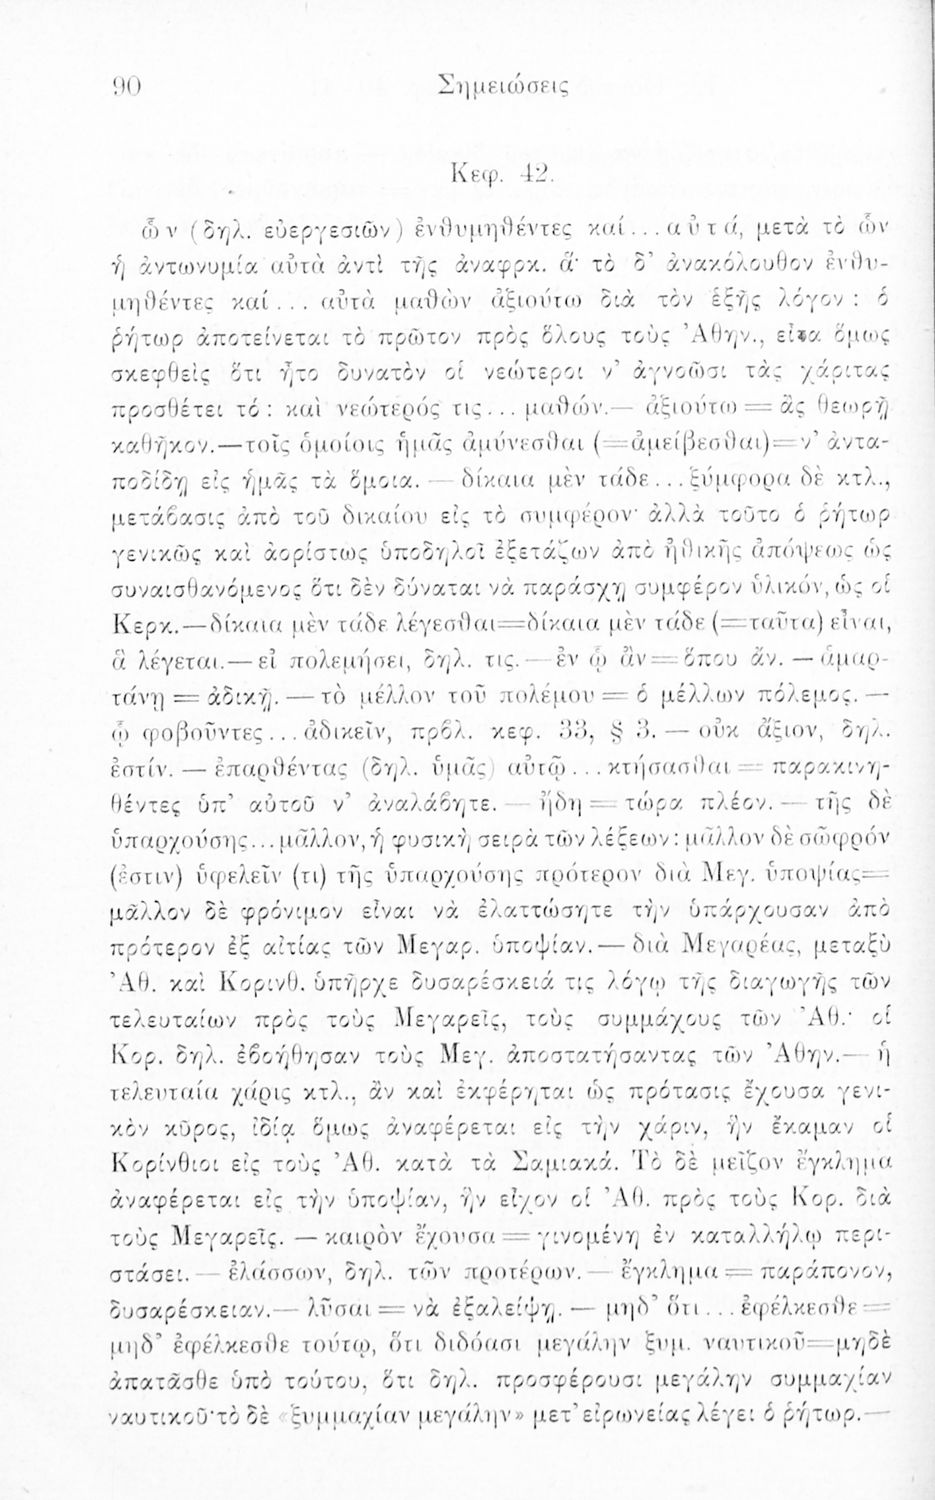 90 Σημειώσεις
Κεφ. 42.
ὧν (δηλ. εὐεργεσιῶν) ἐνθυμηθέντες καί... αὐτά, μετὰ τὸ ὧν
ἡ ἀντωνυμία αὐτὰ ἀντὶ τῆς ἀναφρκ. ἅ· τὸ δ’ ἀνακόλουθον ἐνθυ-
μηθέντες καί... αὐτὰ μαθὼν ἀξιούτω διὰ τὸν ἑξῆς λόγον : ὁ
ῥήτωρ ἀποτείνεται τὸ πρῶτον πρὸς ὅλους τοὺς Ἀθην., εἶτα ὅμως
σκεφθεὶς ὅτι ἦτο δυνατὸν οἱ νεώτεροι ν’ ἀγνοῶσι τὰς χάριτας
προσθέτει τό : καὶ νεώτερός τις... μαθών.— ἀξιούτω = ἂς θεωρῇ
καθῆκον.—τοῖς ὁμοίοις ἡμᾶς ἀμύνεσθαι (=ἀμείβεσθαι)=ν’ ἀντα-
ποδίδῃ εἰς ἡμᾶς τὰ ὅμοια. — δίκαια μὲν τάδε... ξύμφορα δὲ κτλ.,
μετάβασις ἀπὸ τοῦ δικαίου εἰς τὸ συμφέρον· ἀλλὰ τοῦτο ὁ ῥήτωρ
γενικῶς καὶ ἀορίστως ὑποδηλοῖ ἐξετάζων ἀπὸ ἠθικῆς ἀπόψεως ὡς
συναισθανόμενος ὅτι δὲν δύναται νὰ παράσχῃ συμφέρον ὑλικόν, ὡς οἱ
Κερκ.—δίκαια μὲν τάδε λέγεσθαι=δίκαια μὲν τάδε (=ταῦτα) εἶναι,
ἃ λέγεται.— εἰ πολεμήσει, δηλ. τις. — ἐν ᾧ ἂν = ὅπου ἄν. — ἁμαρ-
τάνῃ = ἀδικῇ. — τὸ μέλλον τοῦ πολέμου = ὁ μέλλων πόλεμος. —
ᾧ φοβοῦντες... ἀδικεῖν, πρβλ. κεφ. 33, § 3. — οὐκ ἄξιον, δηλ.
ἐστίν. — ἐπαρθέντας (δηλ. ὑμᾶς) αὐτῷ... κτήσασθαι = παρακινη-
θέντες ὑπ’ αὐτοῦ ν’ ἀναλάβητε. — ἤδη = τώρα πλέον. — τῆς δὲ
ὑπαρχούσης... μᾶλλον, ἡ φυσικὴ σειρὰ τῶν λέξεων : μᾶλλον δὲ σῶφρόν
(ἐστιν) ὑφελεῖν (τι) τῆς ὑπαρχούσης πρότερον διὰ Μεγ. ὑποψίας=
μᾶλλον δὲ φρόνιμον εἶναι νὰ ἐλαττώσητε τὴν ὑπάρχουσαν ἀπὸ
πρότερον ἐξ αἰτίας τῶν Μεγαρ. ὑποψίαν.— διὰ Μεγαρέας, μεταξὺ
Ἀθ. καὶ Κορινθ. ὑπῆρχε δυσαρέσκειά τις λόγῳ τῆς διαγωγῆς τῶν
τελευταίων πρὸς τοὺς Μεγαρεῖς, τοὺς συμμάχους τῶν Ἀθ.· οἱ
Κορ. δηλ. ἐβοήθησαν τοὺς Μεγ. ἀποστατήσαντας τῶν Ἀθην.— ἡ
τελευταία χάρις κτλ., ἂν καὶ ἐκφέρηται ὡς πρότασις ἔχουσα γενι-
κὸν κῦρος, ἰδίᾳ ὅμως ἀναφέρεται εἰς τὴν χάριν, ἣν ἔκαμαν οἱ
Κορίνθιοι εἰς τοὺς Ἀθ. κατὰ τὰ Σαμιακά. Τὸ δὲ μεῖζον ἔγκλημα
ἀναφέρεται εἰς τὴν ὑποψίαν, ἣν εἶχον οἱ Ἀθ. πρὸς τοὺς Κορ. διὰ
τοὺς Μεγαρεῖς. — καιρὸν ἔχουσα = γινομένη ἐν καταλλήλῳ περι-
στάσει. — ἐλάσσων, δηλ. τῶν προτέρων. — ἔγκλημα = παράπονον,
δυσαρέσκειαν.— λῦσαι = νὰ ἐξαλείψῃ. — μηδ’ ὅτι... ἐφέλκεσθε =
μηδ’ ἐφέλκεσθε τούτῳ, ὅτι διδόασι μεγάλην ξυμ. ναυτικοῦ=μηδὲ
ἀπατᾶσθε ὑπὸ τούτου, ὅτι δηλ. προσφέρουσι μεγάλην συμμαχίαν
ναυτικοῦ· τὸ δὲ «ξυμμαχίαν μεγάλην» μετ’ εἰρωνείας λέγει ὁ ῥήτωρ.—